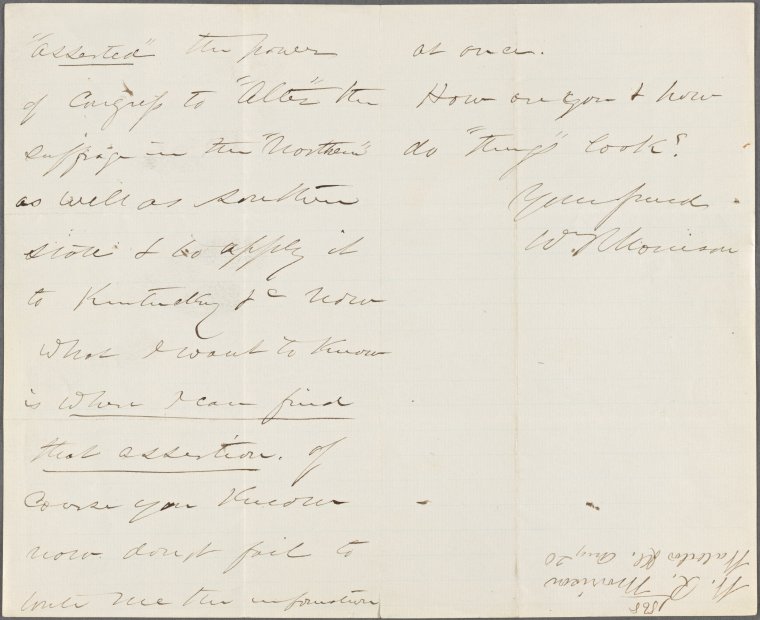 "asserted" the power
of Congress to "Alter" the
suffrage in the "Northern"
as well as southern
state & to apply it
to Kentucky &c Now
What I want to know
is where I can find
that assertion. Of
course you Know
now don,t fail to
write me the information
at once.
How are you & how
do "things" look?
Your friend
Wm R Morrison
W. R. Morrison
Waterloo Ill. Aug 20